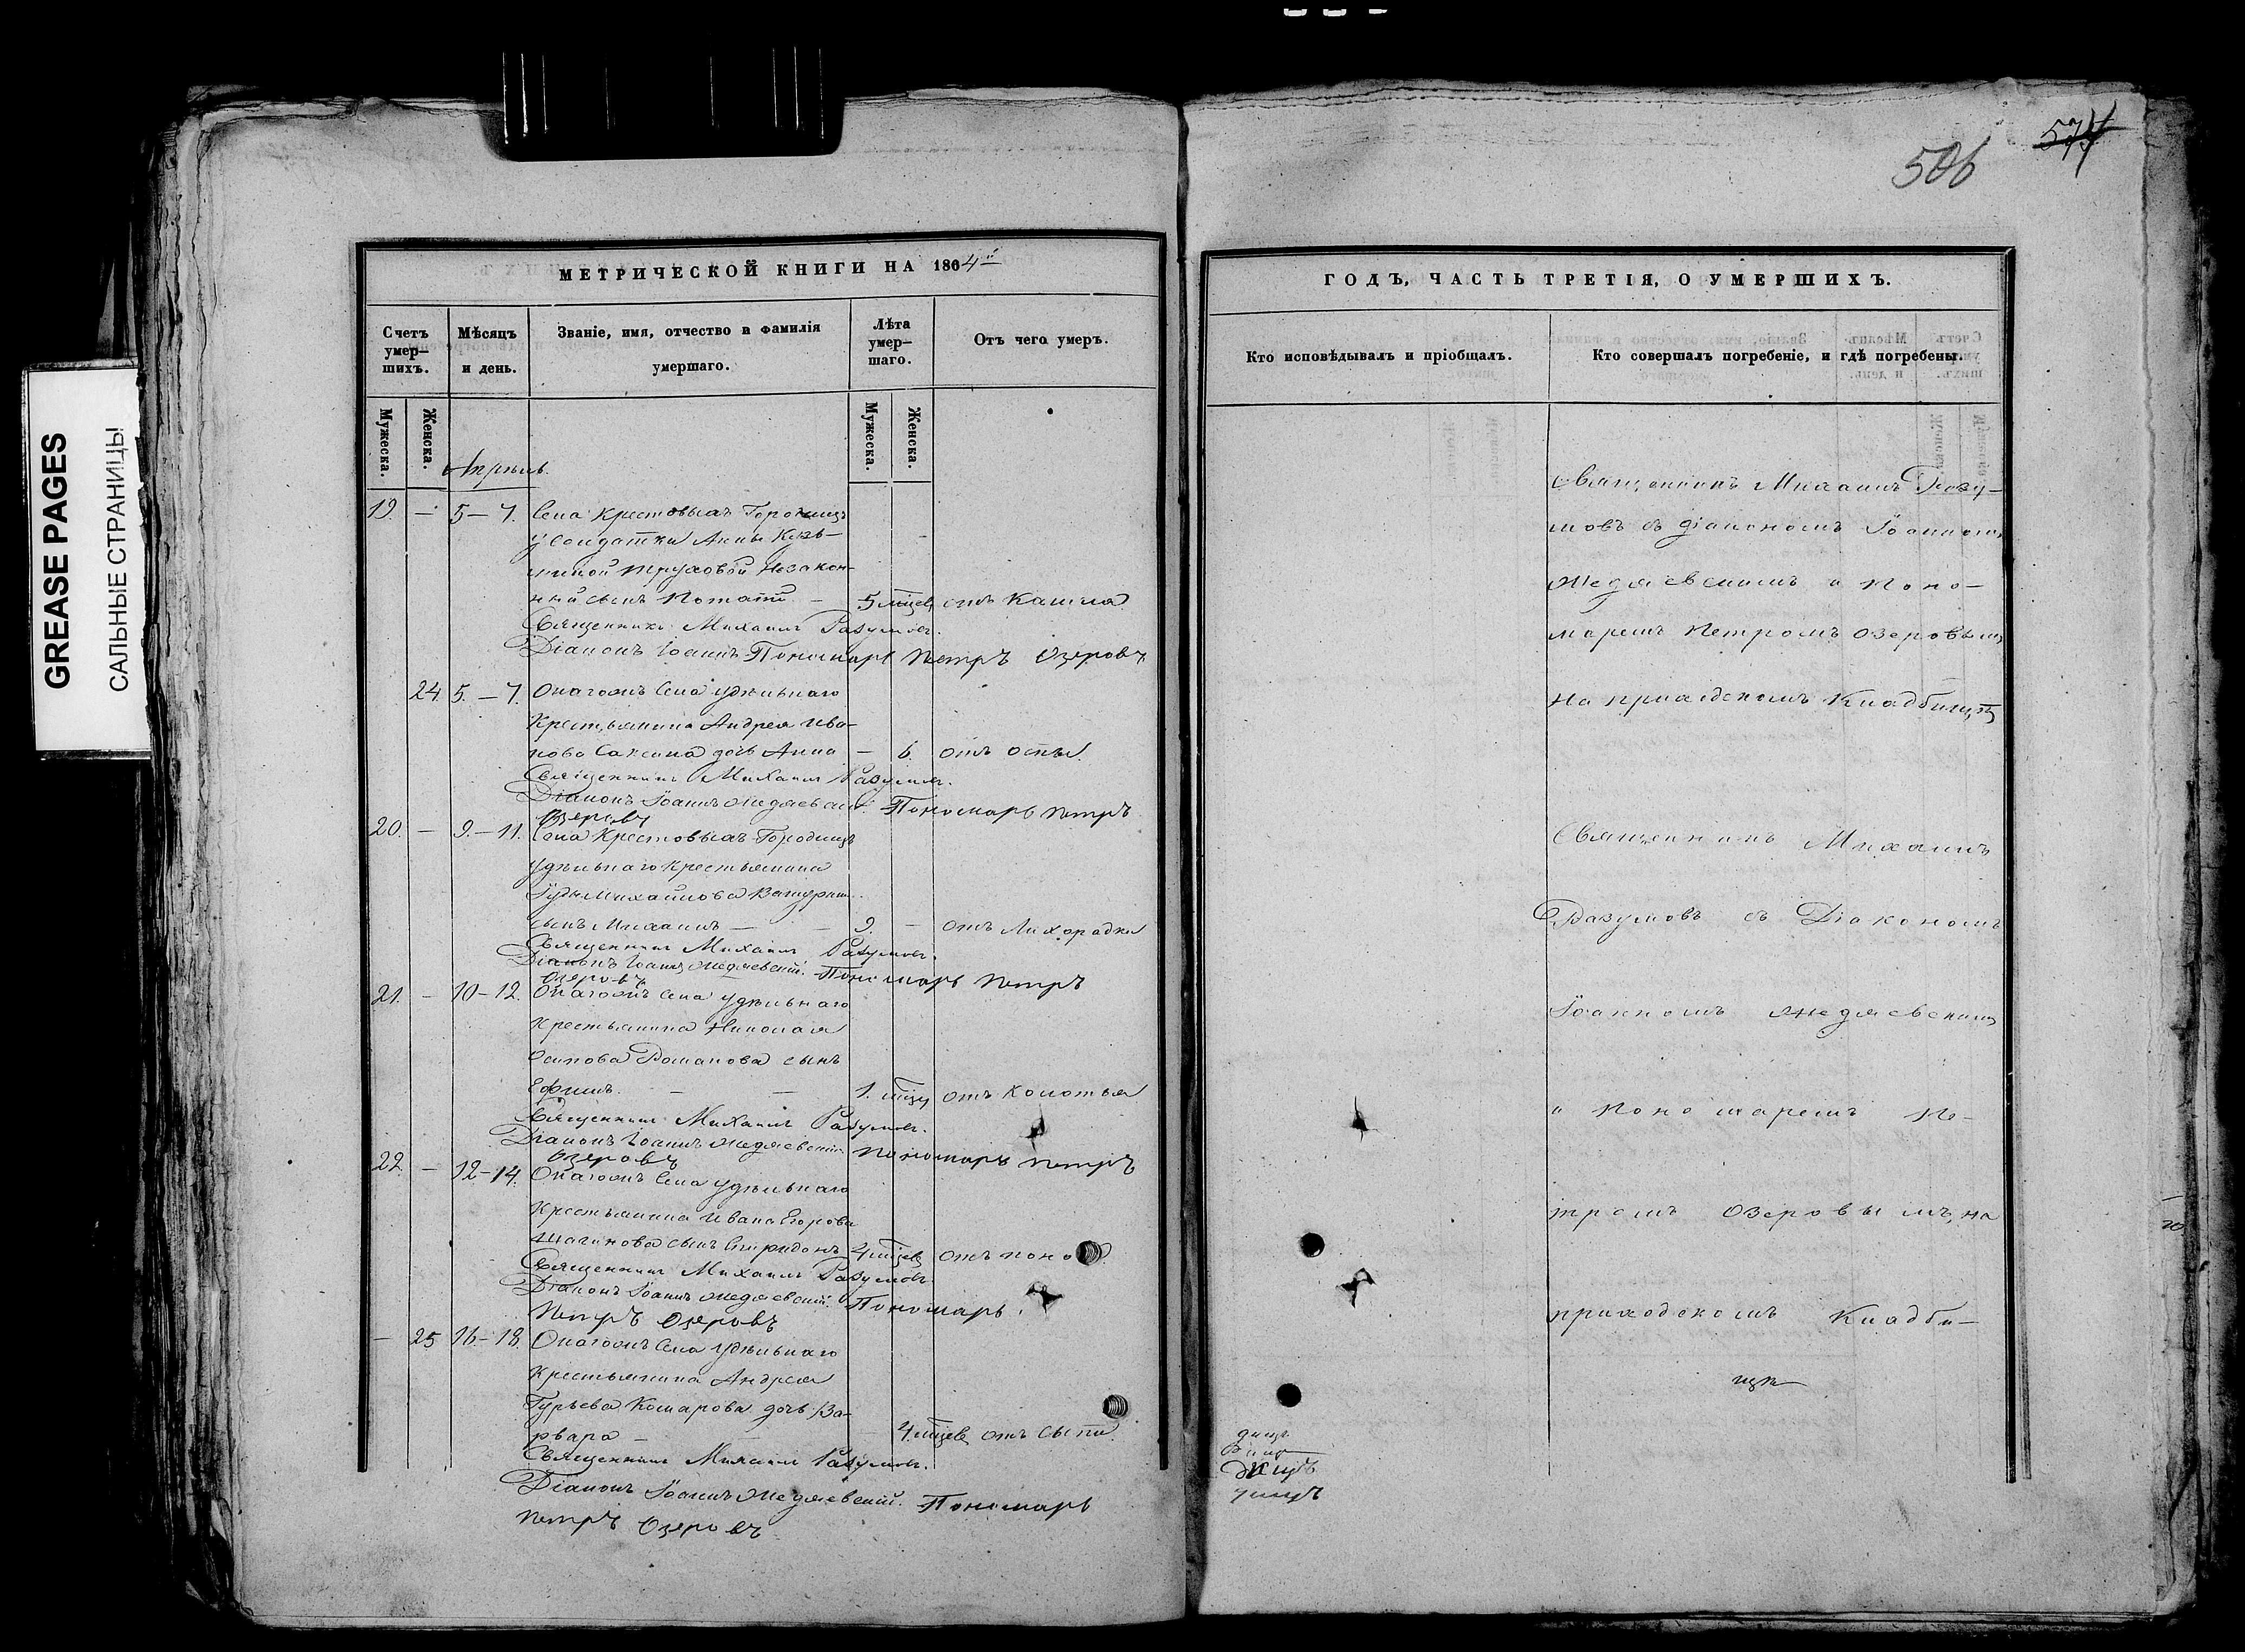 GREASE PAGES
САЛЬНЫЕ СТРАНИЦЫ
МЕТРИЧЕСКОЙ КНИГИ НА 1864й
Счетъ умер-шихъ.
Мѣсяцъ и день.
Званіе, имя, отчество и фамилія умершаго.
Лѣта умер-шаго.
Отъ чего умеръ.
Мужеска.
Женска.
Мужеска.
Женска.
Апрѣль.
19. — 5 — 7. Села Крестовыхъ Городищъ
у Солдатки Анны Козь-
миной Труховой Незакон-
ный сынъ Потапій — 5 мѣсец отъ Кашля
Священникъ Михаилъ Разумовъ.
Діаконъ Іоаннъ Пономарь Петръ Озеровъ
24. 5. — 7. Онагожъ Села удѣльнаго
Крестьянина Андрея Ива-
нова Саксина дочь Анна — 6. отъ оспы.
Священникъ Михаилъ Разумовъ.
Діаконъ Іоаннъ Медяевскій. Пономарь Петръ
Озеровъ
20. — 9. — 11. Села Крестовыхъ Городищъ
Удѣльнаго Крестьянина
Михайлова
сынъ Михаилъ — 9. — отъ Лихорадки
Священникъ Михаилъ Разумовъ.
Діаконъ Іоаннъ Медяевскій. Пономарь Петръ
Озеровъ
21. — 10 — 12. Онагожъ Села удѣльнаго
Крестьянина Николая
Осипова Романова сынъ
Ефимъ. — — 1. мѣсц отъ Колотья
Священникъ Михаилъ Разумовъ.
Діаконъ Іоаннъ Медяевскій Пономарь Петръ
Озеровъ
22. — 12 — 14. Онагожъ Села удѣльнаго
Крестьянина Ивана Егорова
сынъ Спиридонъ 4 мѣсец отъ
Священникъ Михаилъ Разумовъ
Діаконъ Іоаннъ Медяевскій. Пономарь
Петръ Озеровъ
— 25 16 — 18. Онагожъ Села Удѣльнаго
Крестьянина Андрея
Гурьева Комарова дочь Ва-
рвара — 4. мѣсец отъ Сыпи.
Священникъ Михаилъ Разумовъ.
Діаконъ Іоаннъ Медяевскій. Пономарь
Петръ Озеровъ
506
574
ГОДЪ, ЧАСТЬ ТРЕТІЯ, О УМЕРШИХЪ.
Кто исповѣдывалъ и пріобщалъ.
Кто совершалъ погребеніе, и гдѣ погребены.
Священникъ Михаилъ Разу-
мовъ съ діакономъ Іоанномъ
Медяевскимъ и Поно-
маремъ Петромъ Озеровымъ
На приходскомъ Кладбищѣ
Священникъ Михаилъ
Разумовъ съ Діакономъ
Іоанномъ Медяевскимъ
и Пономаремъ Пе-
тромъ Озеровымъ, на
приходскомъ Кладби-
щѣ